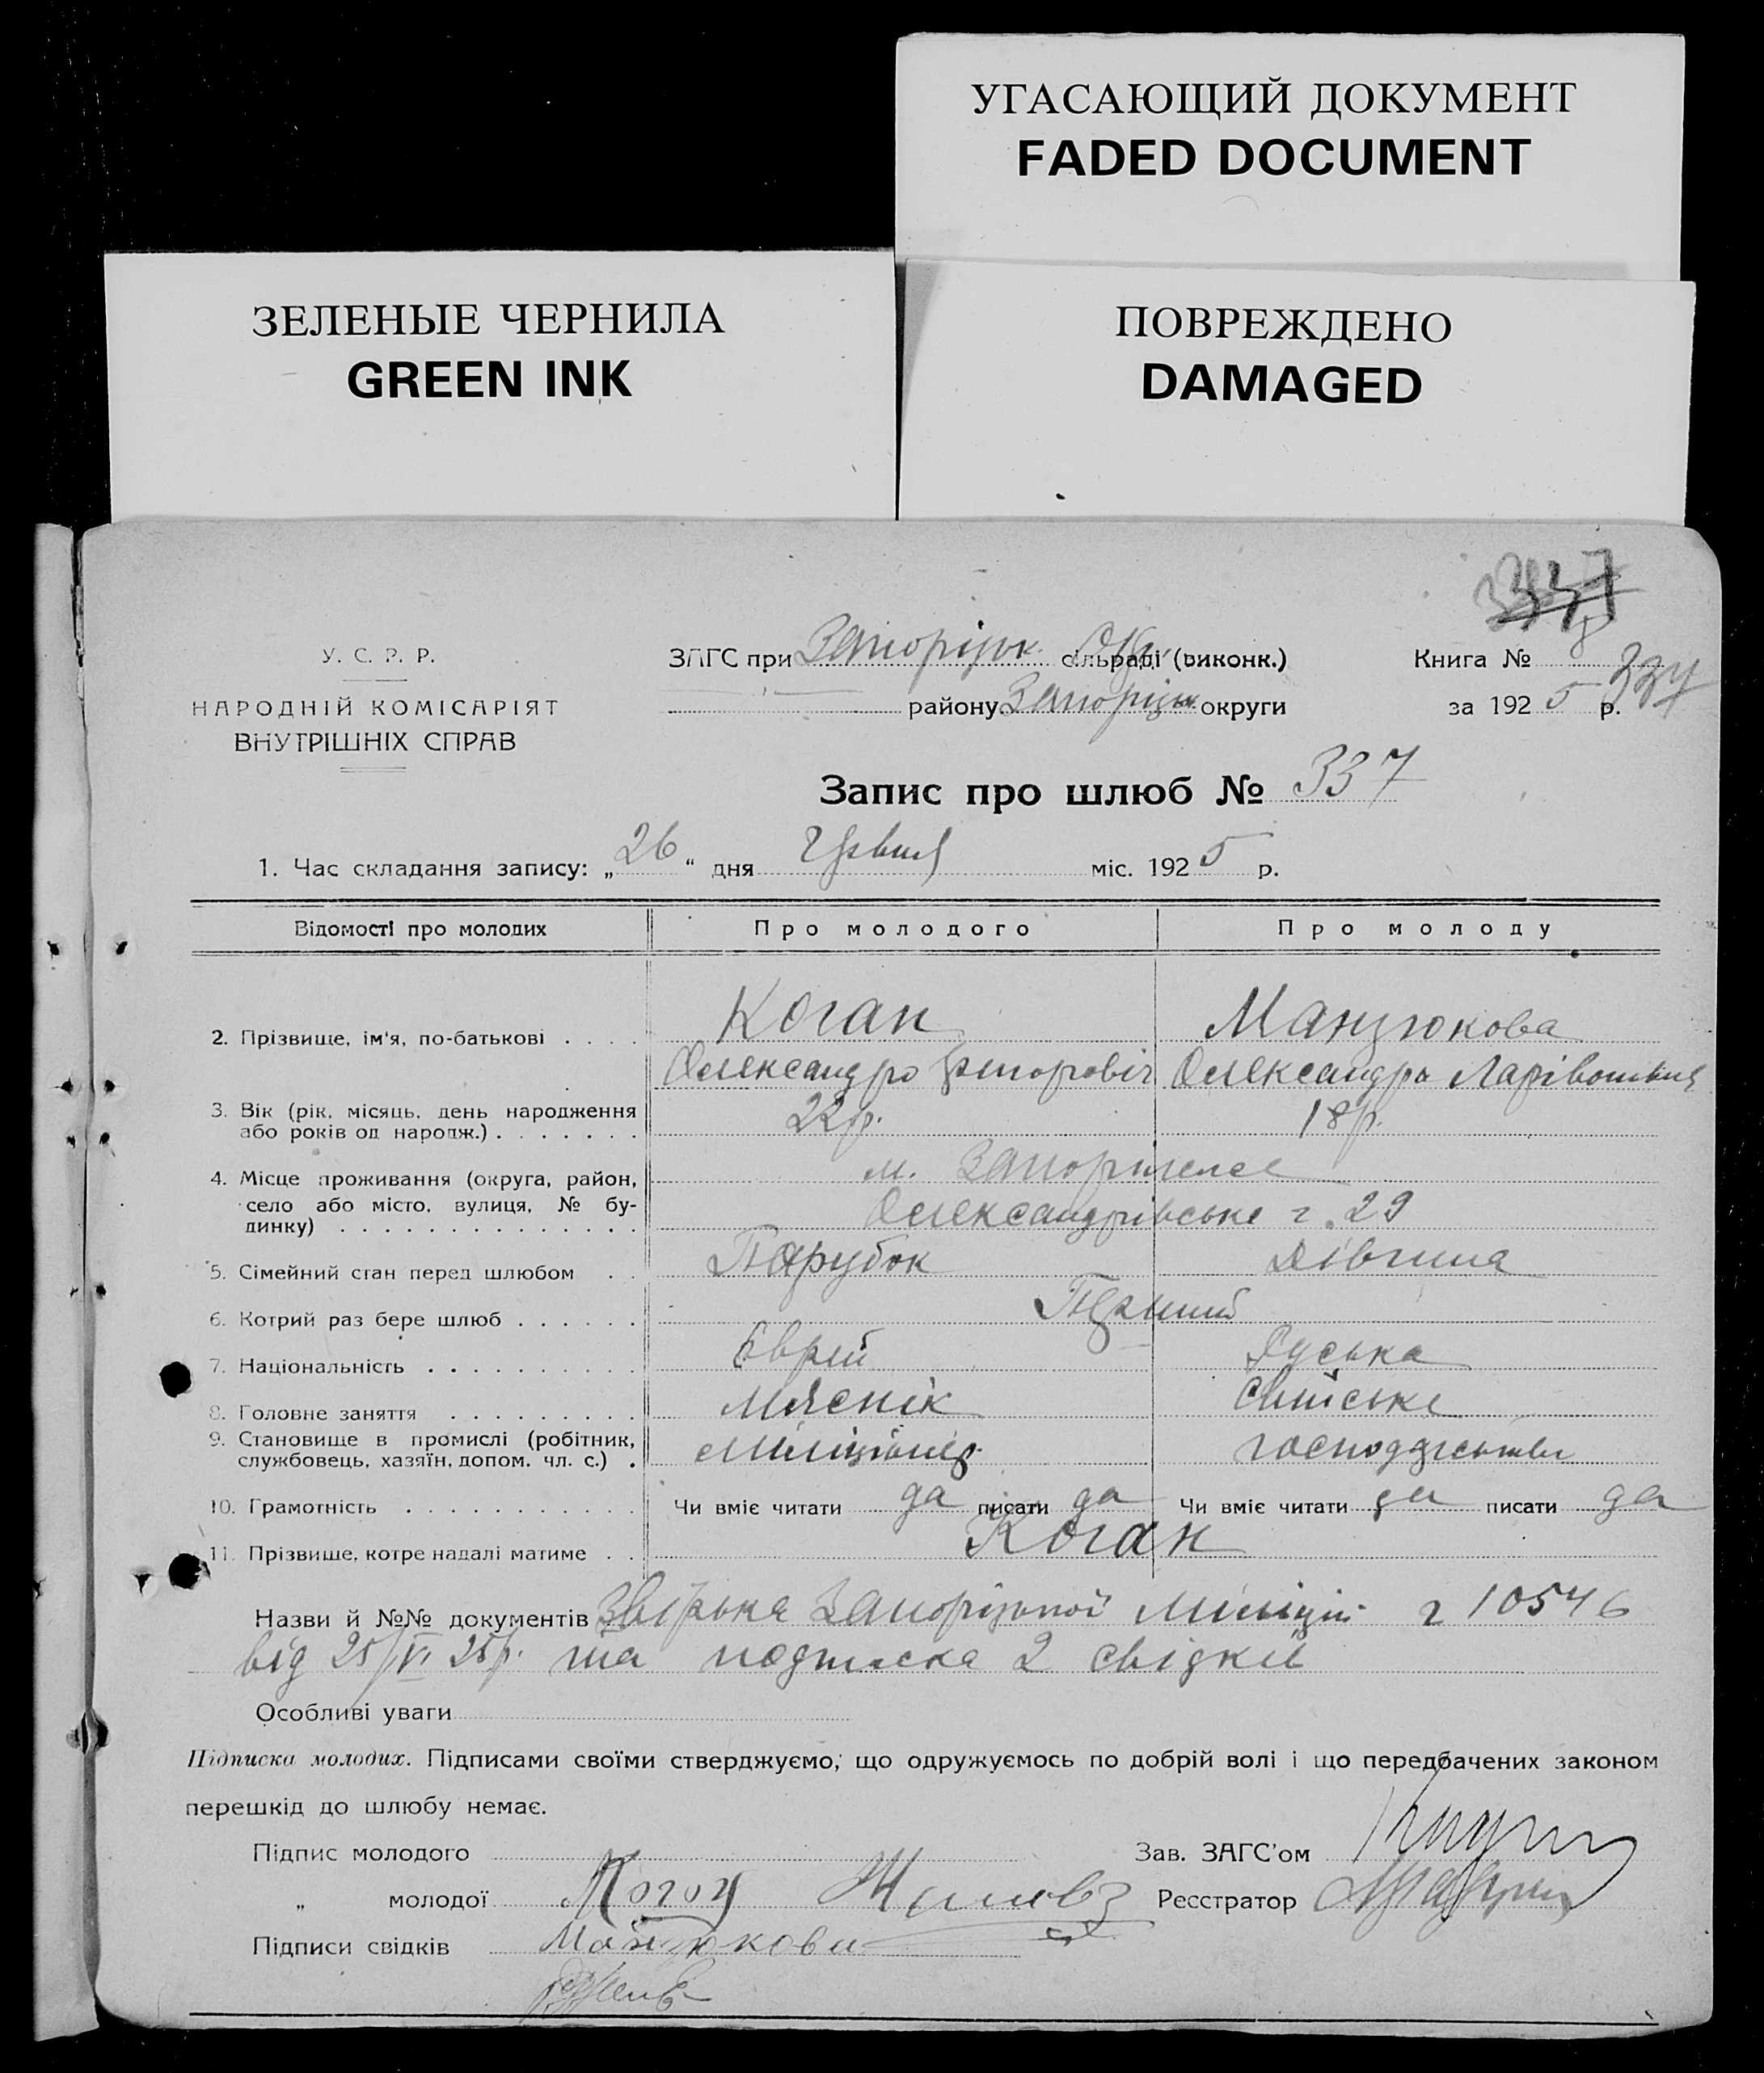 УГАСАЮЩИЙ ДОКУМЕНТ
FADED DOCUMENT
ЗЕЛЕНЫЕ ЧЕРНИЛА
GREEN INK
ПОВРЕЖДЕНО
DAMAGED
337
У. С. Р. Р.
НАРОДНІЙ КОМІСАРІЯТ
ВНУТРІШНІХ СПРАВ
ЗАГС при Запорізьк. сільраді (виконк.)
району Запорізьк округи
Книга № 8
337
за 1925 р.
Запис про шлюб № 337
1. Час складання запису: „26“ дня червня міс. 1925 р.
Відомості про молодих Про молодого Про молоду
2. Прізвище, ім'я, по-батькові . . . . Коган Манзюкова
Олександр Олександра Ларівоновна
3. Вік (рік, місяць, день народження
або років од народж.) . . . . . . . 22 р. 18 р.
4. Місце проживання (округа, район,
село або місто, вулиця, № бу-
динку) . . . . . . . . . . . . . .
м. Запоріжжє
Олександрівське ч. 29
5. Сімейний стан перед шлюбом . . Парубок Дівчина
6. Котрий раз бере шлюб . . . . . . Перший
7. Національність . . . . . . . . . . Єврей Руська
8. Головне заняття . . . . . . . . . Мяснік Сільське
9. Становище в промислі (робітник,
службовець, хазяїн, допом. чл. с.) . міліціонер господарство
10. Грамотність . . . . . . . . . . . Чи вміє читати да писати да Чи вміє читати да писати да
11. Прізвище, котре надалі матиме . . Коган
Назви й №№ документів Запорізької Міліції ч 10546
від 25/VI 25 р. та подписка 2 свідків
Особливі уваги
Підписка молодих. Підписами своїми стверджуємо, що одружуємось по добрій волі і що передбачених законом
перешкід до шлюбу немає.
Підпис молодого
Зав. ЗАГС'ом
„ молодої Коган
Реєстратор
Підписи свідків Манзюкова